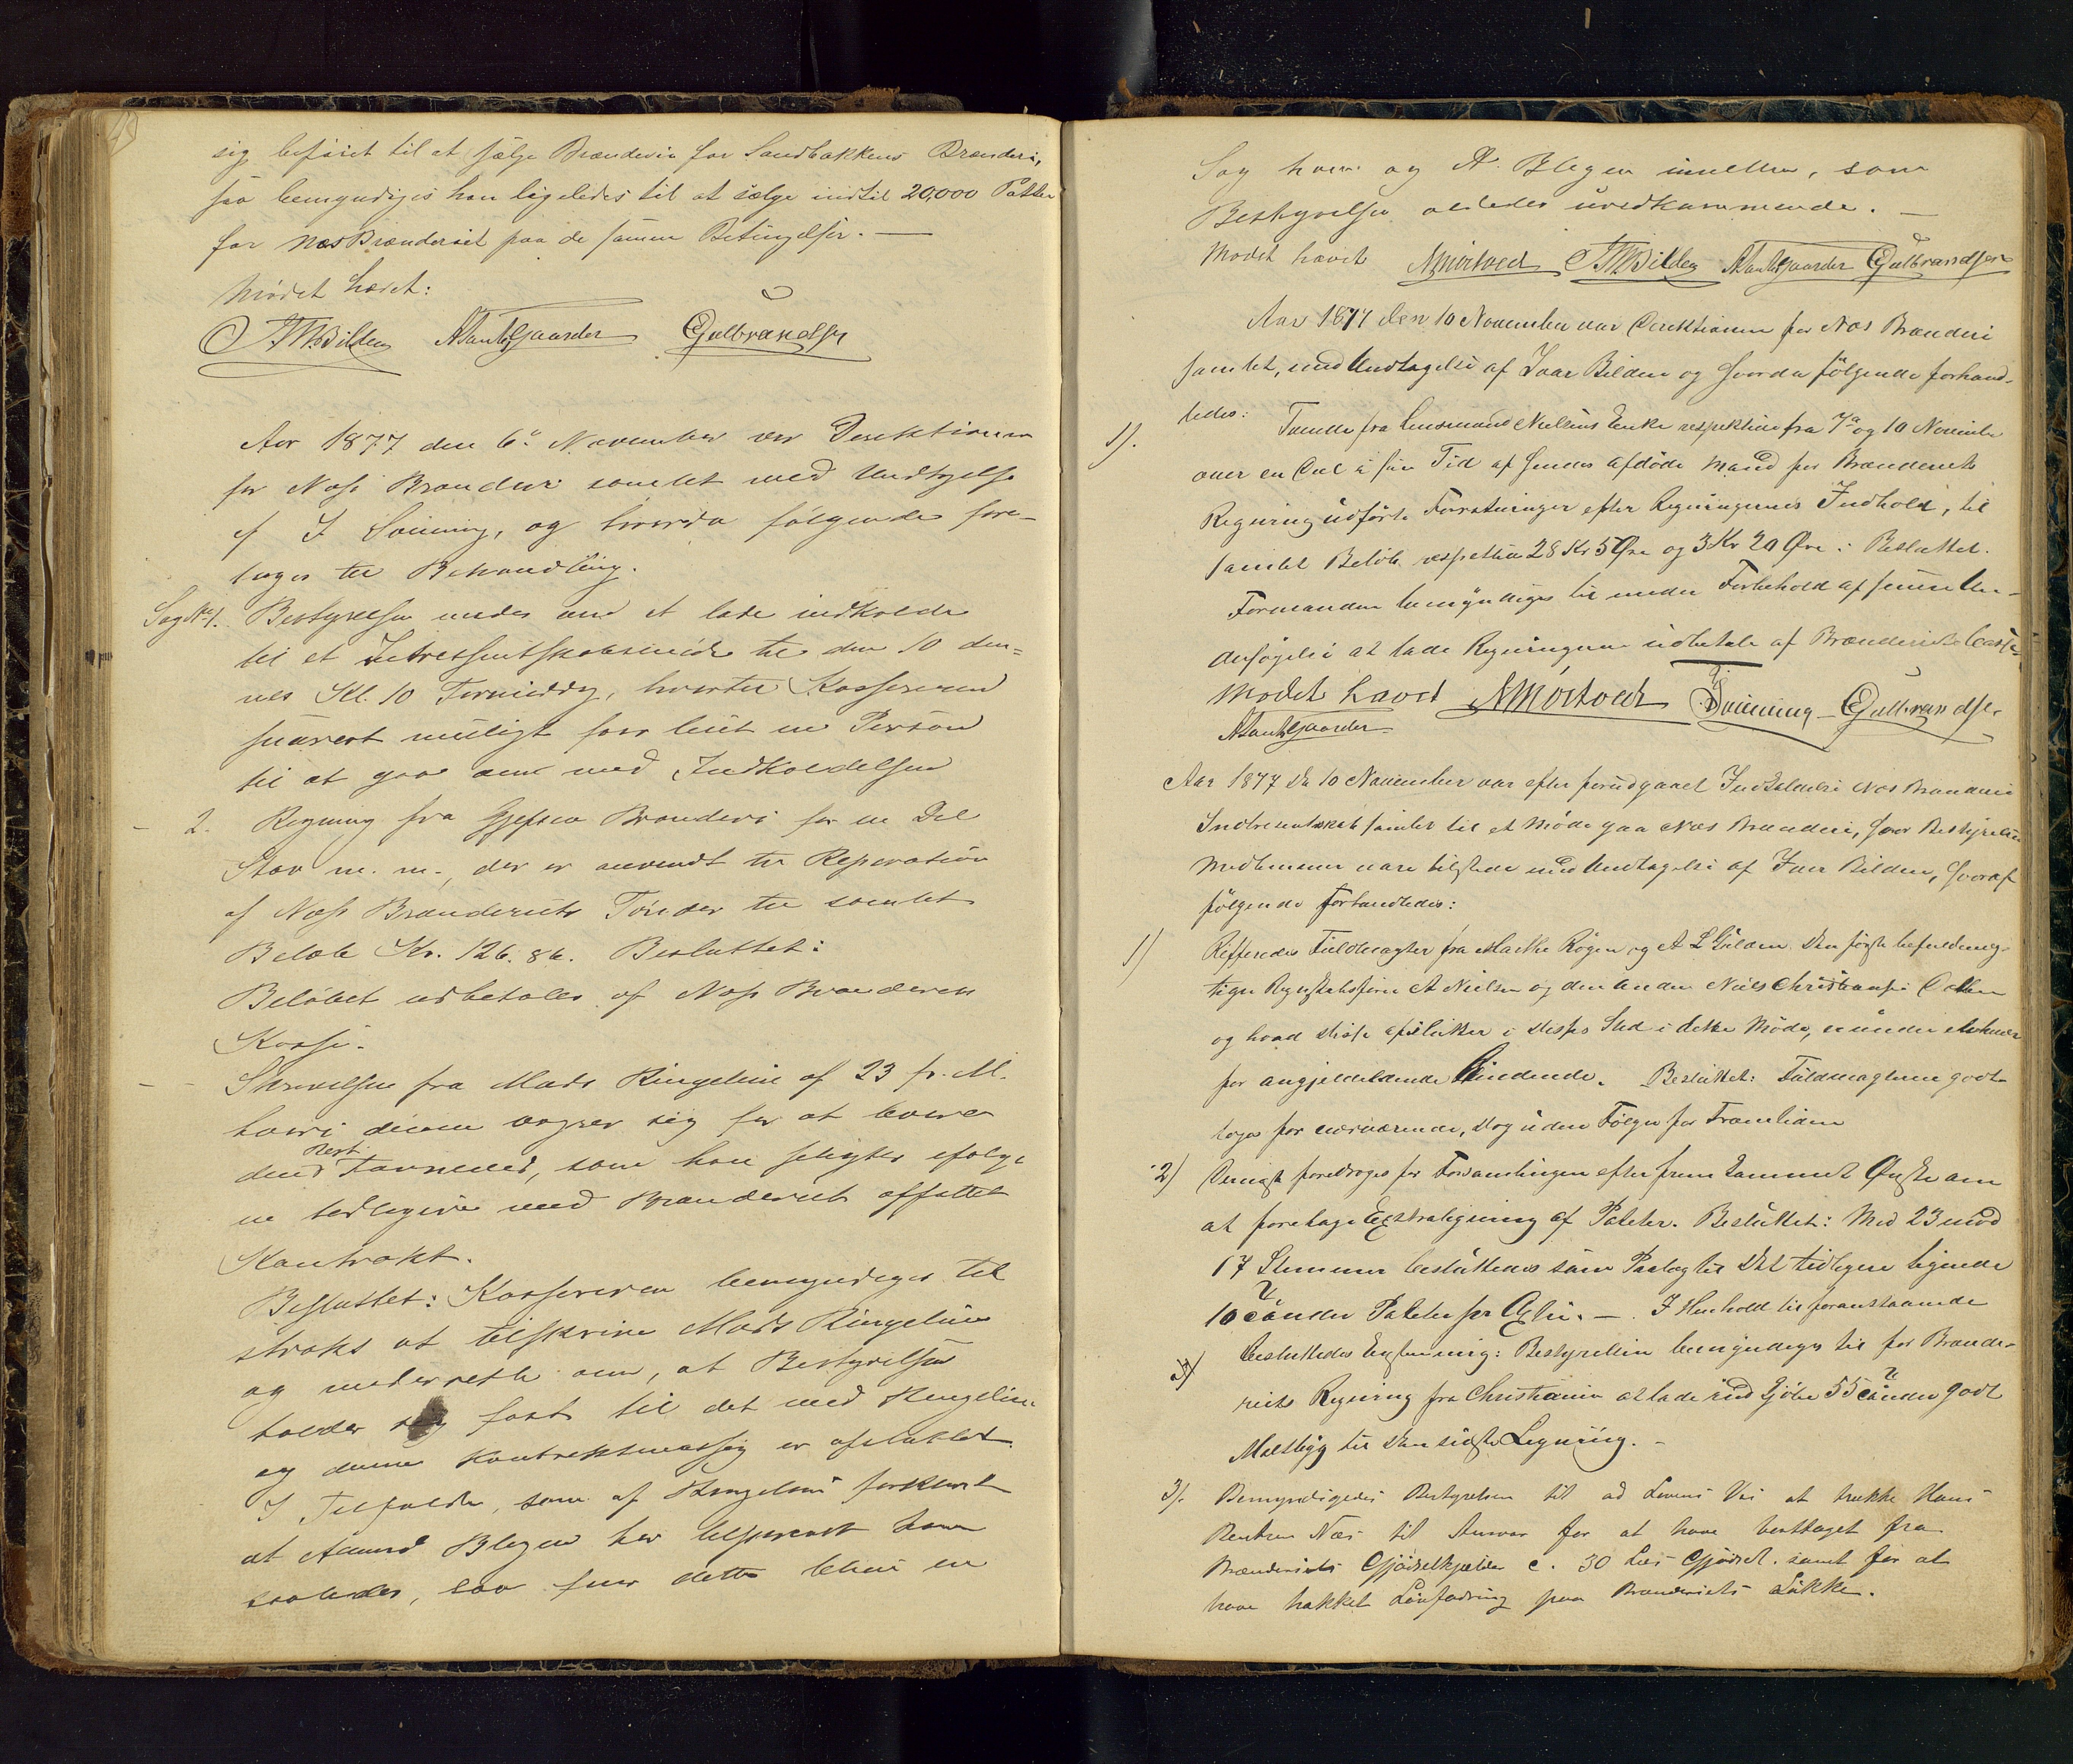 sig beføiet til at sælge Brændevin for Sandbakkens Brænderi,
saa bemyndiges han ligeledes til at sælge indtil 20,000 Potter
for Næs Brænderiet paa de samme Betingelser. —
Mødet hævet:
Bilden A Tandsgaarder Gulbrandsen
Aar 1877 den 6te November var Direktionen
for Næs Brænderi samlet med Undtagelse
af I Svining, og hvorda følgende fore-
toges til Behandling.
Sag No 1. Bestyrelsen enedes om at lade indkalde
til et Interessentskabsmøde til den 10 den-
nes Kl. 10 Formiddag, hvortil Kassereren
snarest muligt faar leiet en Person
til at gaae om med Indkaldelsen
- 2. Regning fra Gjefsen Brænderi for en Del
Stav m. m., der er anvendt til Reparation
af Næs Brænderiets Tønder til samlet
Beløb Kr. 126. 86. Besluttet:
Beløbet udbetales af Næs Brænderies
Kasse.
- - Skrivelse fra Mads Ringelien af 23 f. M.
hvori denne vægrer sig for at levere
den Rest Favneved, som han pligter ifølge
en tidligere med Brænderiet affattet
Kontrakt.
Besluttet: Kassereren bemyndiges til
straks at tilskrive Mads Ringelien
og underrette om, at Bestyrelsen
holder sig fast til det med Ringelien
og denne Kontraktmæssig er afsluttet.
I Tilfælde, som af Ringelien forklaret
at Amund Blegen har
saaledes, saa faar dette blive en
Sag ham og A. Blegen imellem, som
Bestyrelsen aldeles uvedkommende. —
Mødet hævet A Mortved Bilden A Tandsgaarder Gulbrandsen
Aar 1877 den 10 November var Direktionen for Næs Brænderi
samlet, med Undtagelse af Ivar Bilden og hvorda følgende forhand-
ledes:
1). Tvende fra Lensmand Nielsens Enke respektive fra 7de og 10 November
over en Del i sin Tid af hendes afdøde Mand for Brænderiets
Regning udførte Forretninger efter Regningernes Indhold, til
samlet Beløb respektive 28 Kr 5 Øre og 3 Kr 20 Øre: Besluttet.
Formanden bemyndiges til under Forbehold af Un-
dersøgelse at lade Regningerne udbetale af Brænderiets Casse.
Mødet hævet A Mortved I Svining Gulbrandsen
A Tandsgaarder
Aar 1877 Den 10 November var efter forudgaaet Indkaldelse Næs Brænderi
Interessentskab samlet til et Møde paa Næs Brænderi, hvor Bestyrelsens
Medlemmer vare tilstede med Undtagelse af Iver Bilden, hvoraf
følgende forhandledes:
1) Refferedes Fuldmagter fra Marthe Røgen og A L Gulden Den første befuldmæg-
tiger Regnskabsfører A Nielsen og den Anden Niels Christiansen
og hvad disse afslutter i disses Sted i dette Møde,
for angjældende bindende. Besluttet: Fuldmagterne godt-
toges for nærværende, dog uden Følger for Fremtiden
2) Dernæst foredroges for Forsamlingen efter fremkommet Ønske om
at foretage Extraligning af Poteter. Besluttet: Med 23 mod
17 Stemmer besluttedes som Paalæg til det tidligere lignende
10 Tønder Poteter pr Actie. — I Henhold til foranstaaende
3) besluttedes Enstemmig: Bestyrelsen bemyndiges til for Brænde-
riets Regning fra Christiania at lade indkjøbe 55 Tønder godt
Maltbyg til den sidste Ligning. -
3). Bemyndigedes Bestyrelsen til ad Lovens Vei at trække Hans
Bentsen Næs til Ansvar for at have borttaget fra
Brænderiets Gjødselkjælder c. 30 Læs Gjødsel. samt for at
have hakket Løvfodring paa Brænderiets Løkke.